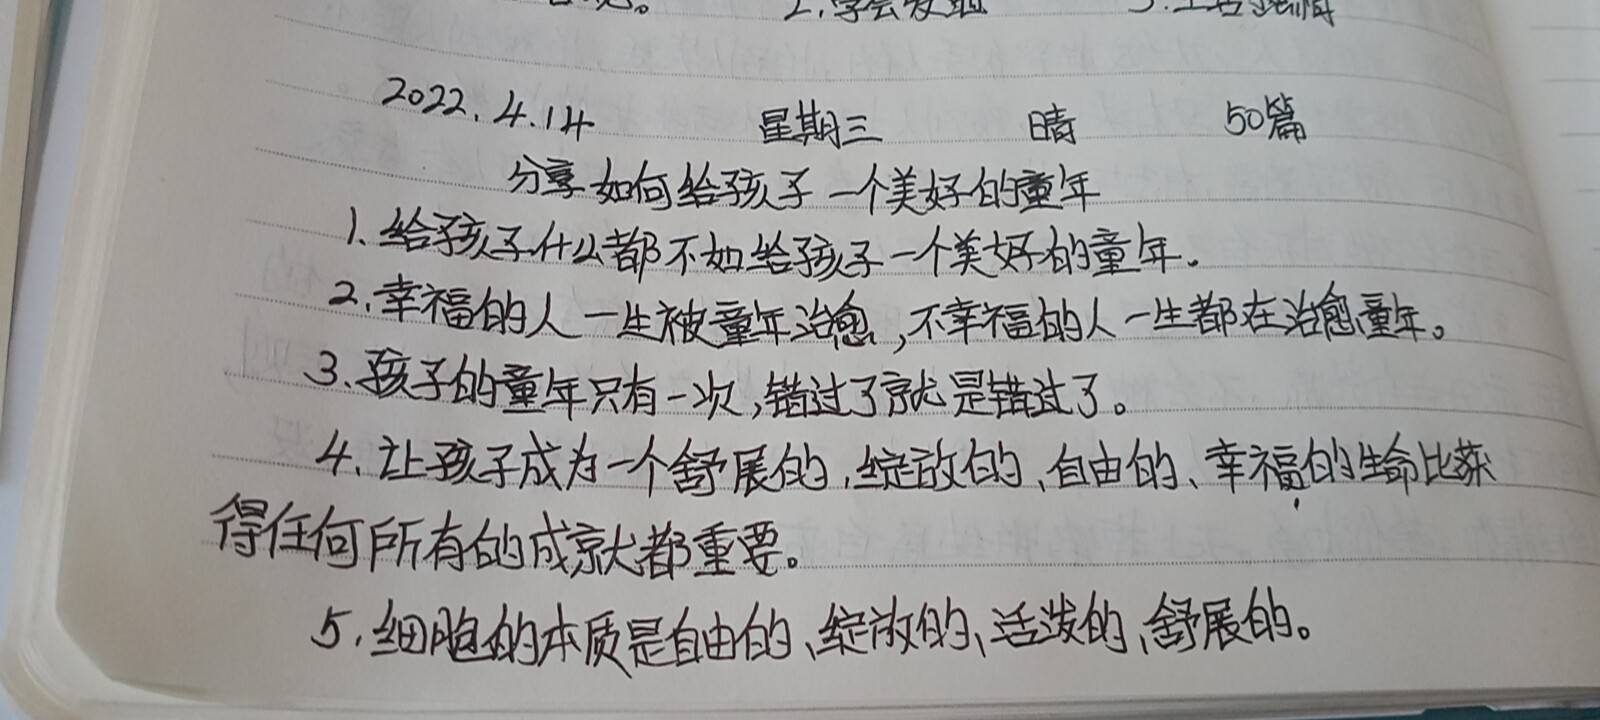 2.学会发
2022.4.14 星期三 晴 50篇
分享如何给孩子一个美好的童年
1.给孩子什么都不如给孩子一个美好的童年。
2.幸福的人一生被童年治愈,不幸福的人一生都在治愈童年。
3、孩子的童年只有一次,错过了就是错过了。
4、让孩子成为一个舒展的、绽放的、自由的、幸福的生命比获
得任何所有的成就都重要。
5、细胞的本质是自由的、绽放的、活泼的、舒展的。